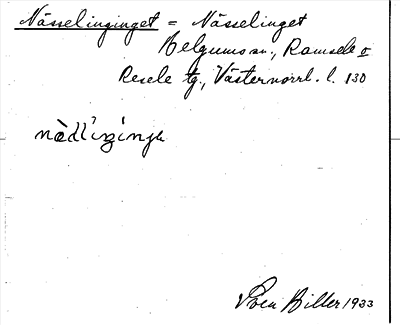 Nässelinginget = Nässelinget
Helgums sn., Ramsele o
Resele tg., Västernorrl. l. 130
nèdliŋiŋə
Sven Biller 1933